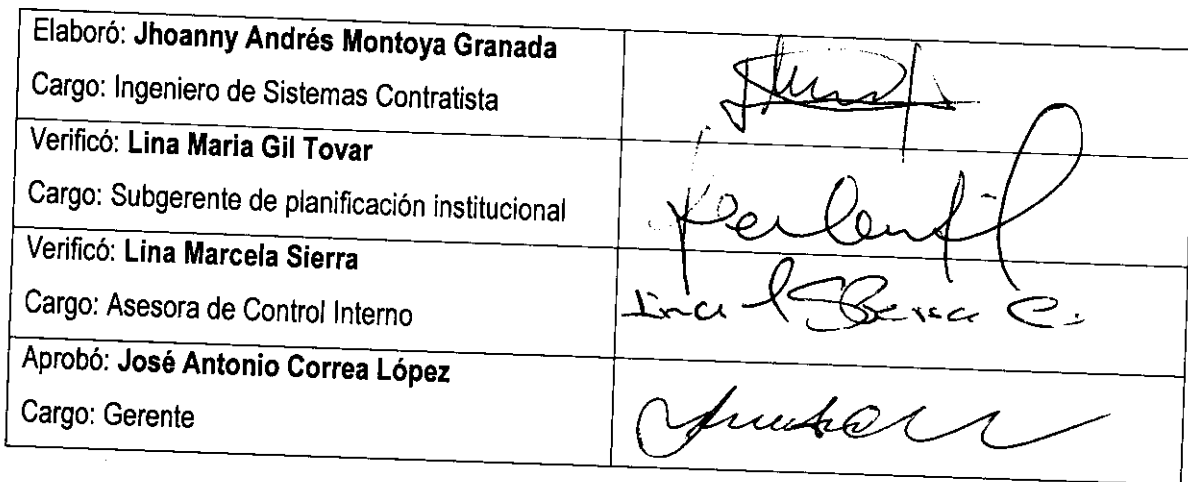 Elaboró: Jhoanny Andrés Montoya Granada
Cargo: Ingeniero de Sistemas Contratista
Verificó: Lina Maria Gil Tovar
Cargo: Subgerente de planificación institucional
Verificó: Lina Marcela Sierra
Cargo: Asesora de Control Interno
Aprobó: José Antonio Correa López
Cargo: Gerente